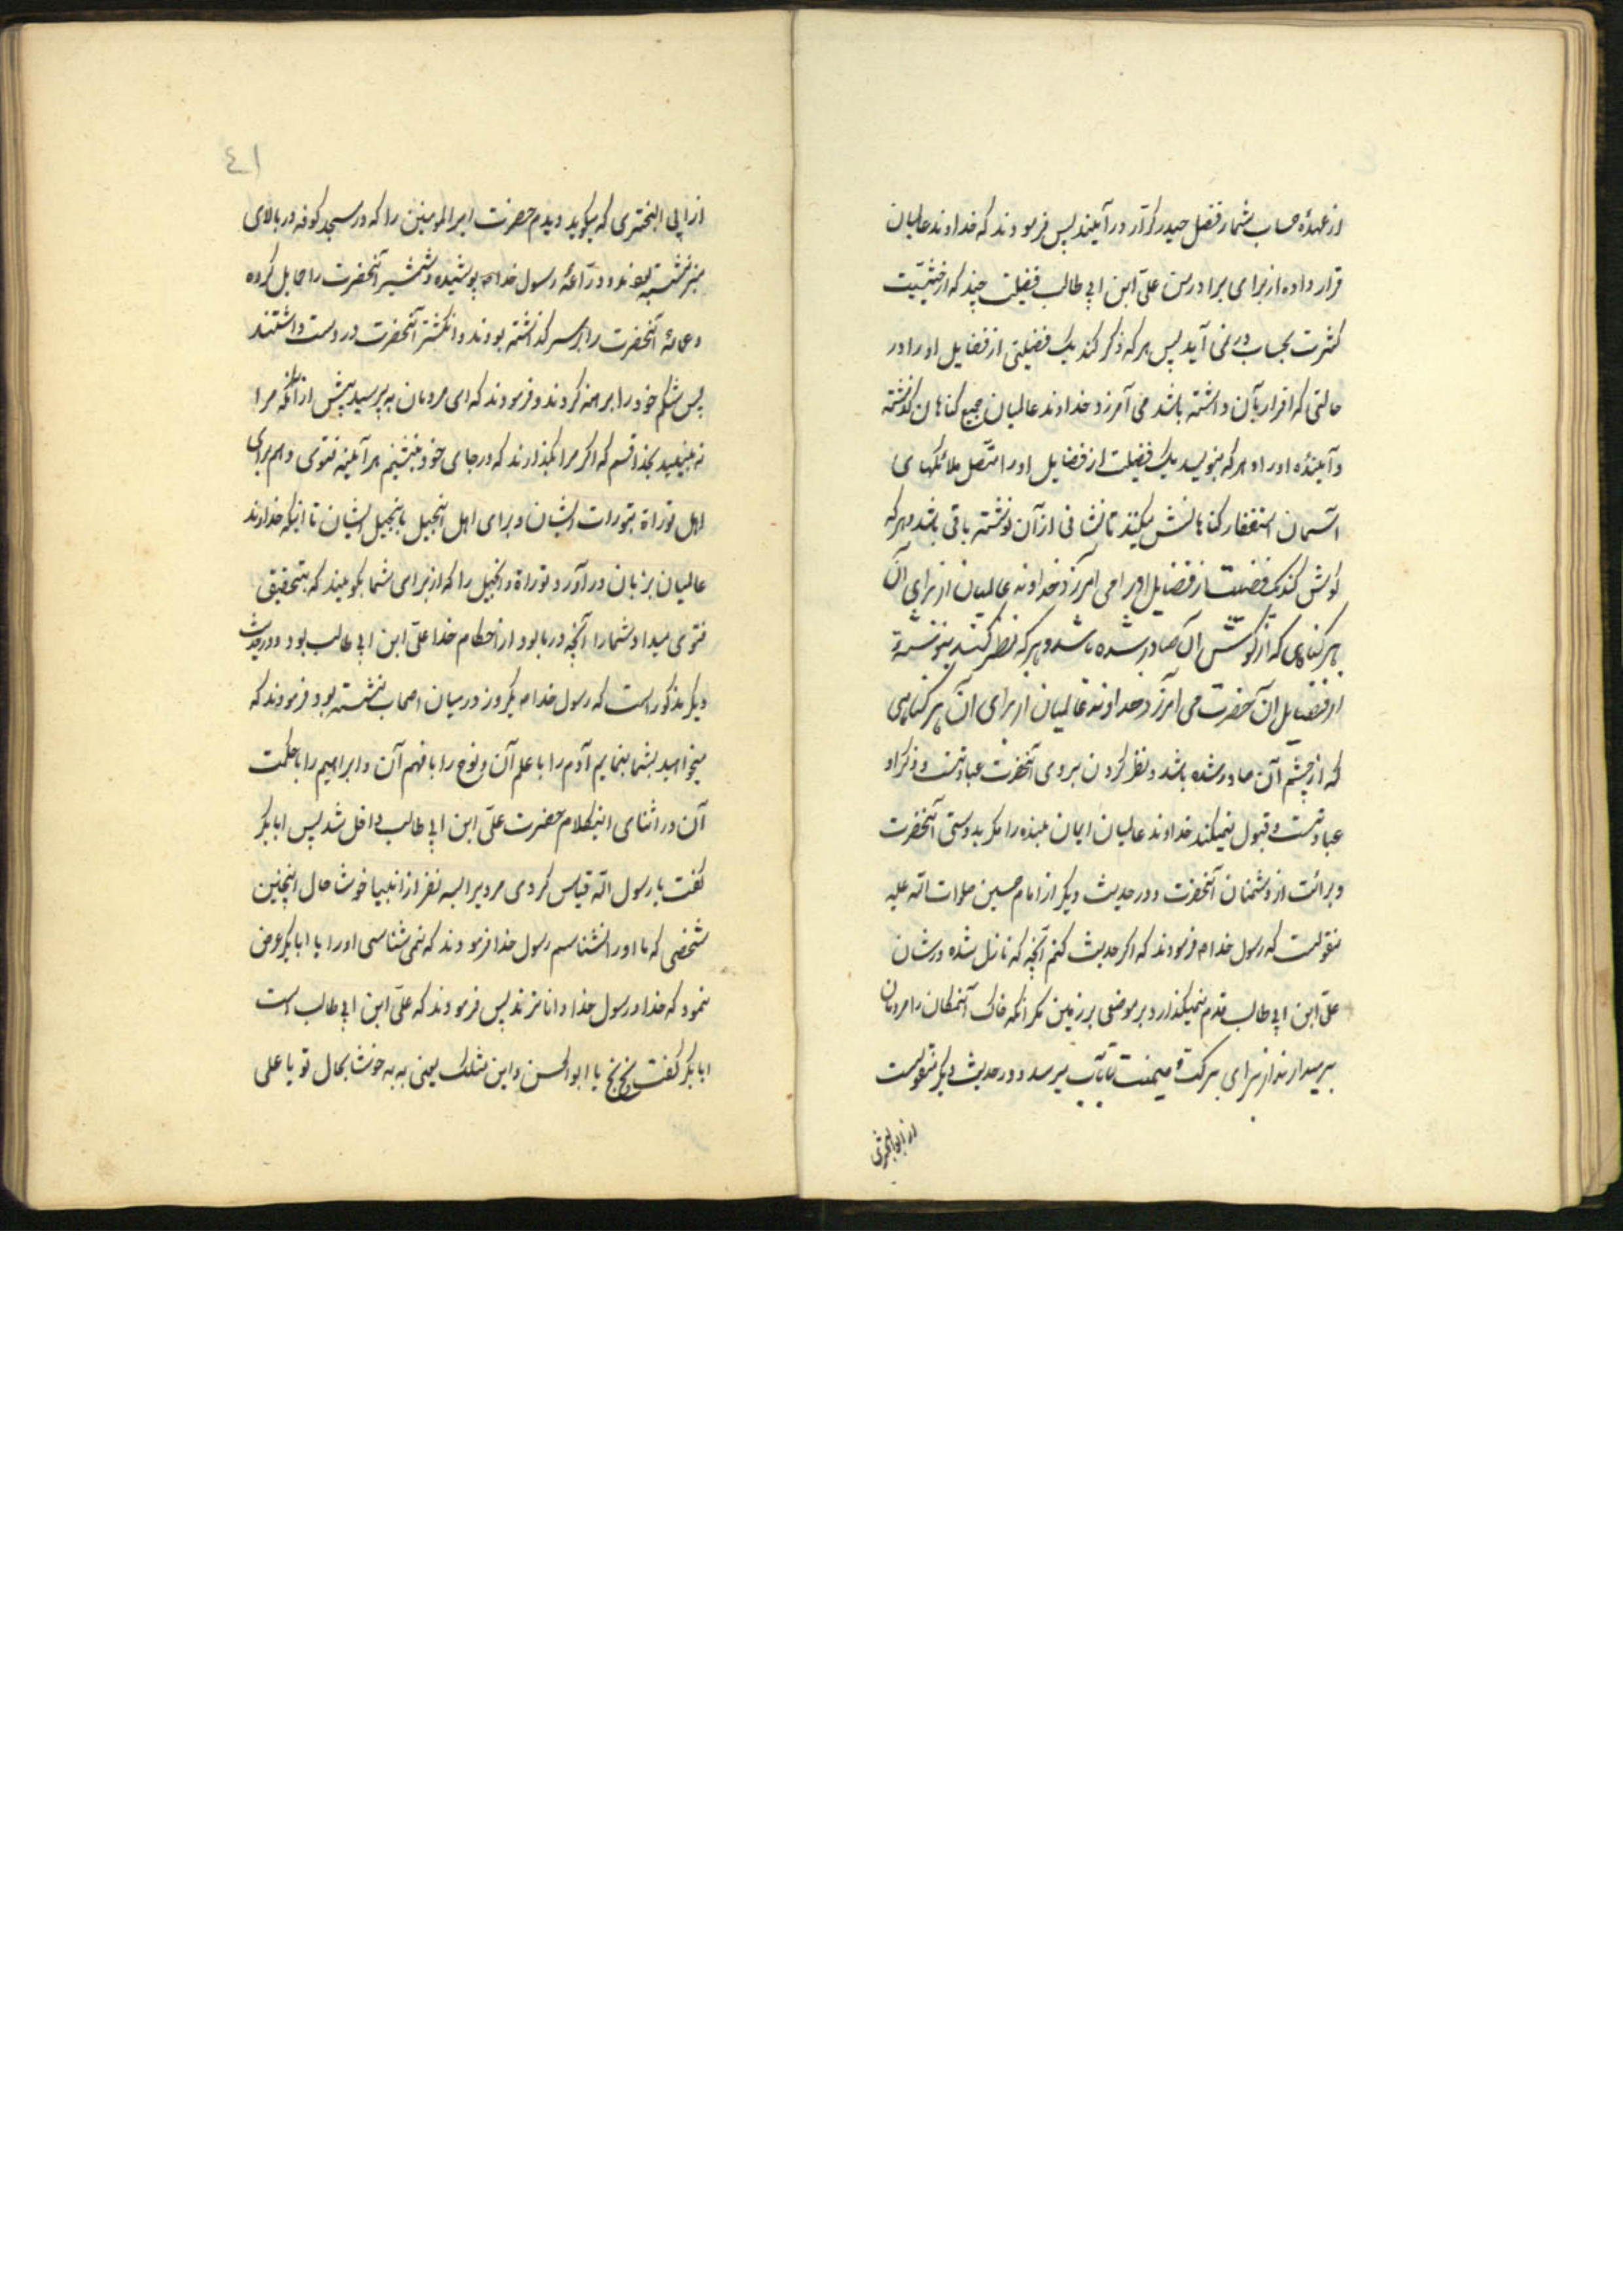 از عهدهٔ حساب شمار فضل حیدر کرّار در آیند پس فرمودند که خداوند عالمیان
قرار داده از برای برادر من علیّ ابن ابی طالب فضیلت چند که از حیثیّت
کثرت بحساب در نمی آید پس هر که ذکر کند یک فضیلتی از فضایل او را در
حالتی که اقرار بآن داشته باشد می آمرزد خداوند عالمیان جمیع کناهان کذشته
و آینده او را و هر که بنویسد یک فضیلت از فضایل او را متّصل ملائکهای
آسمان استغفار کناهانش میکنند تا نشانی از آن نوشته باقی باشد و هر که
کوش کند یک فضیلت از فضایل او را می آمرزد خداوند عالمیان از برای آن
هر کناهی که از کوش آن صادر شده باشد و هر که نظر کند بنوشته
از فضایل آن حضرت می آمرزد خداوند عالمیان از برای آن هر کناهی
که از چشم آن صادر شده باشد و نظر کردن بروی آنحضرت عبادتست و ذکر او
عبادتست و قبول نمیکند خداوند عالمیان ایمان بنده را مکر بدوستی آنحضرت
و برائت از دشمنان آنحضرت و در حدیث دیکر از امام حسین صلوات الله علیه
منقولست که رسول خدا ص فرمودند که اکر حدیث کنم آنچه که نازل شده در شان
علیّ ابن ابی طالب قدم نمیکذارد بر موضعی بر زمین مکر انکه خاک آنمکان را مردمان
بر میدارند از برای برکت و میمنت تا بآب میرسد و در حدیث دیکر منقولست
٤١
از ابی البختری که میکوید دیدم حضرت امیر المومنین را که در مسجد کوفه در بالای
منبر نشسته بودند و درّاعهٔ رسول خدا ص پوشیده و شمشیر آنحضرت را حمایل کرده
و عمامهٔ آنحضرت را بر سر کذاشته بودند و انکشتر آنحضرت در دست داشتند
پس شکم خود را برهنه کردند و فرمودند که ای مردمان بپرسید پیش از آنکه مرا
نه بینید بخدا قسم که اکر مرا بکذارند که در جای خود بنشینم هر آینه فتوی دهم برای
اهل توراة بتورات ایشان و برای اهل انجیل بانجیل ایشان تا اینکه خداوند
عالمیان بزبان در آورد توراة و انجیل را که از برای شما بکویند که بتحقیق
فتوی میداد شما را آنچه در ما بود از احکام خدا علیّ ابن ابی طالب بود و در حدیث
دیکر مذکور است که رسول خدا ص یکروز در میان اصحاب نشسته بود فرمودند که
میخواهید بشما بنمایم آدم را با علم آن و نوح را با فهم آن و ابراهیم را با حکمت
آن در اثنای اینکلام حضرت علیّ ابن ابی طالب داخل شد پس ابابکر
کفت یا رسول الله قیاس کردی مردیرا بسه نفر از انبیا خوشا حال اینچنین
شخصی که ما او را نشناسیم رسول خدا فرمودند که نمی شناسی او را یا ابابکر عرض
نمود که خدا و رسول خدا داناترند پس فرمودند که علیّ ابن ابی طالب است
ابابکر کفت بخ بخ یا ابو الحسن و این مثلک یعنی به به خوشا بحال تو یا علی